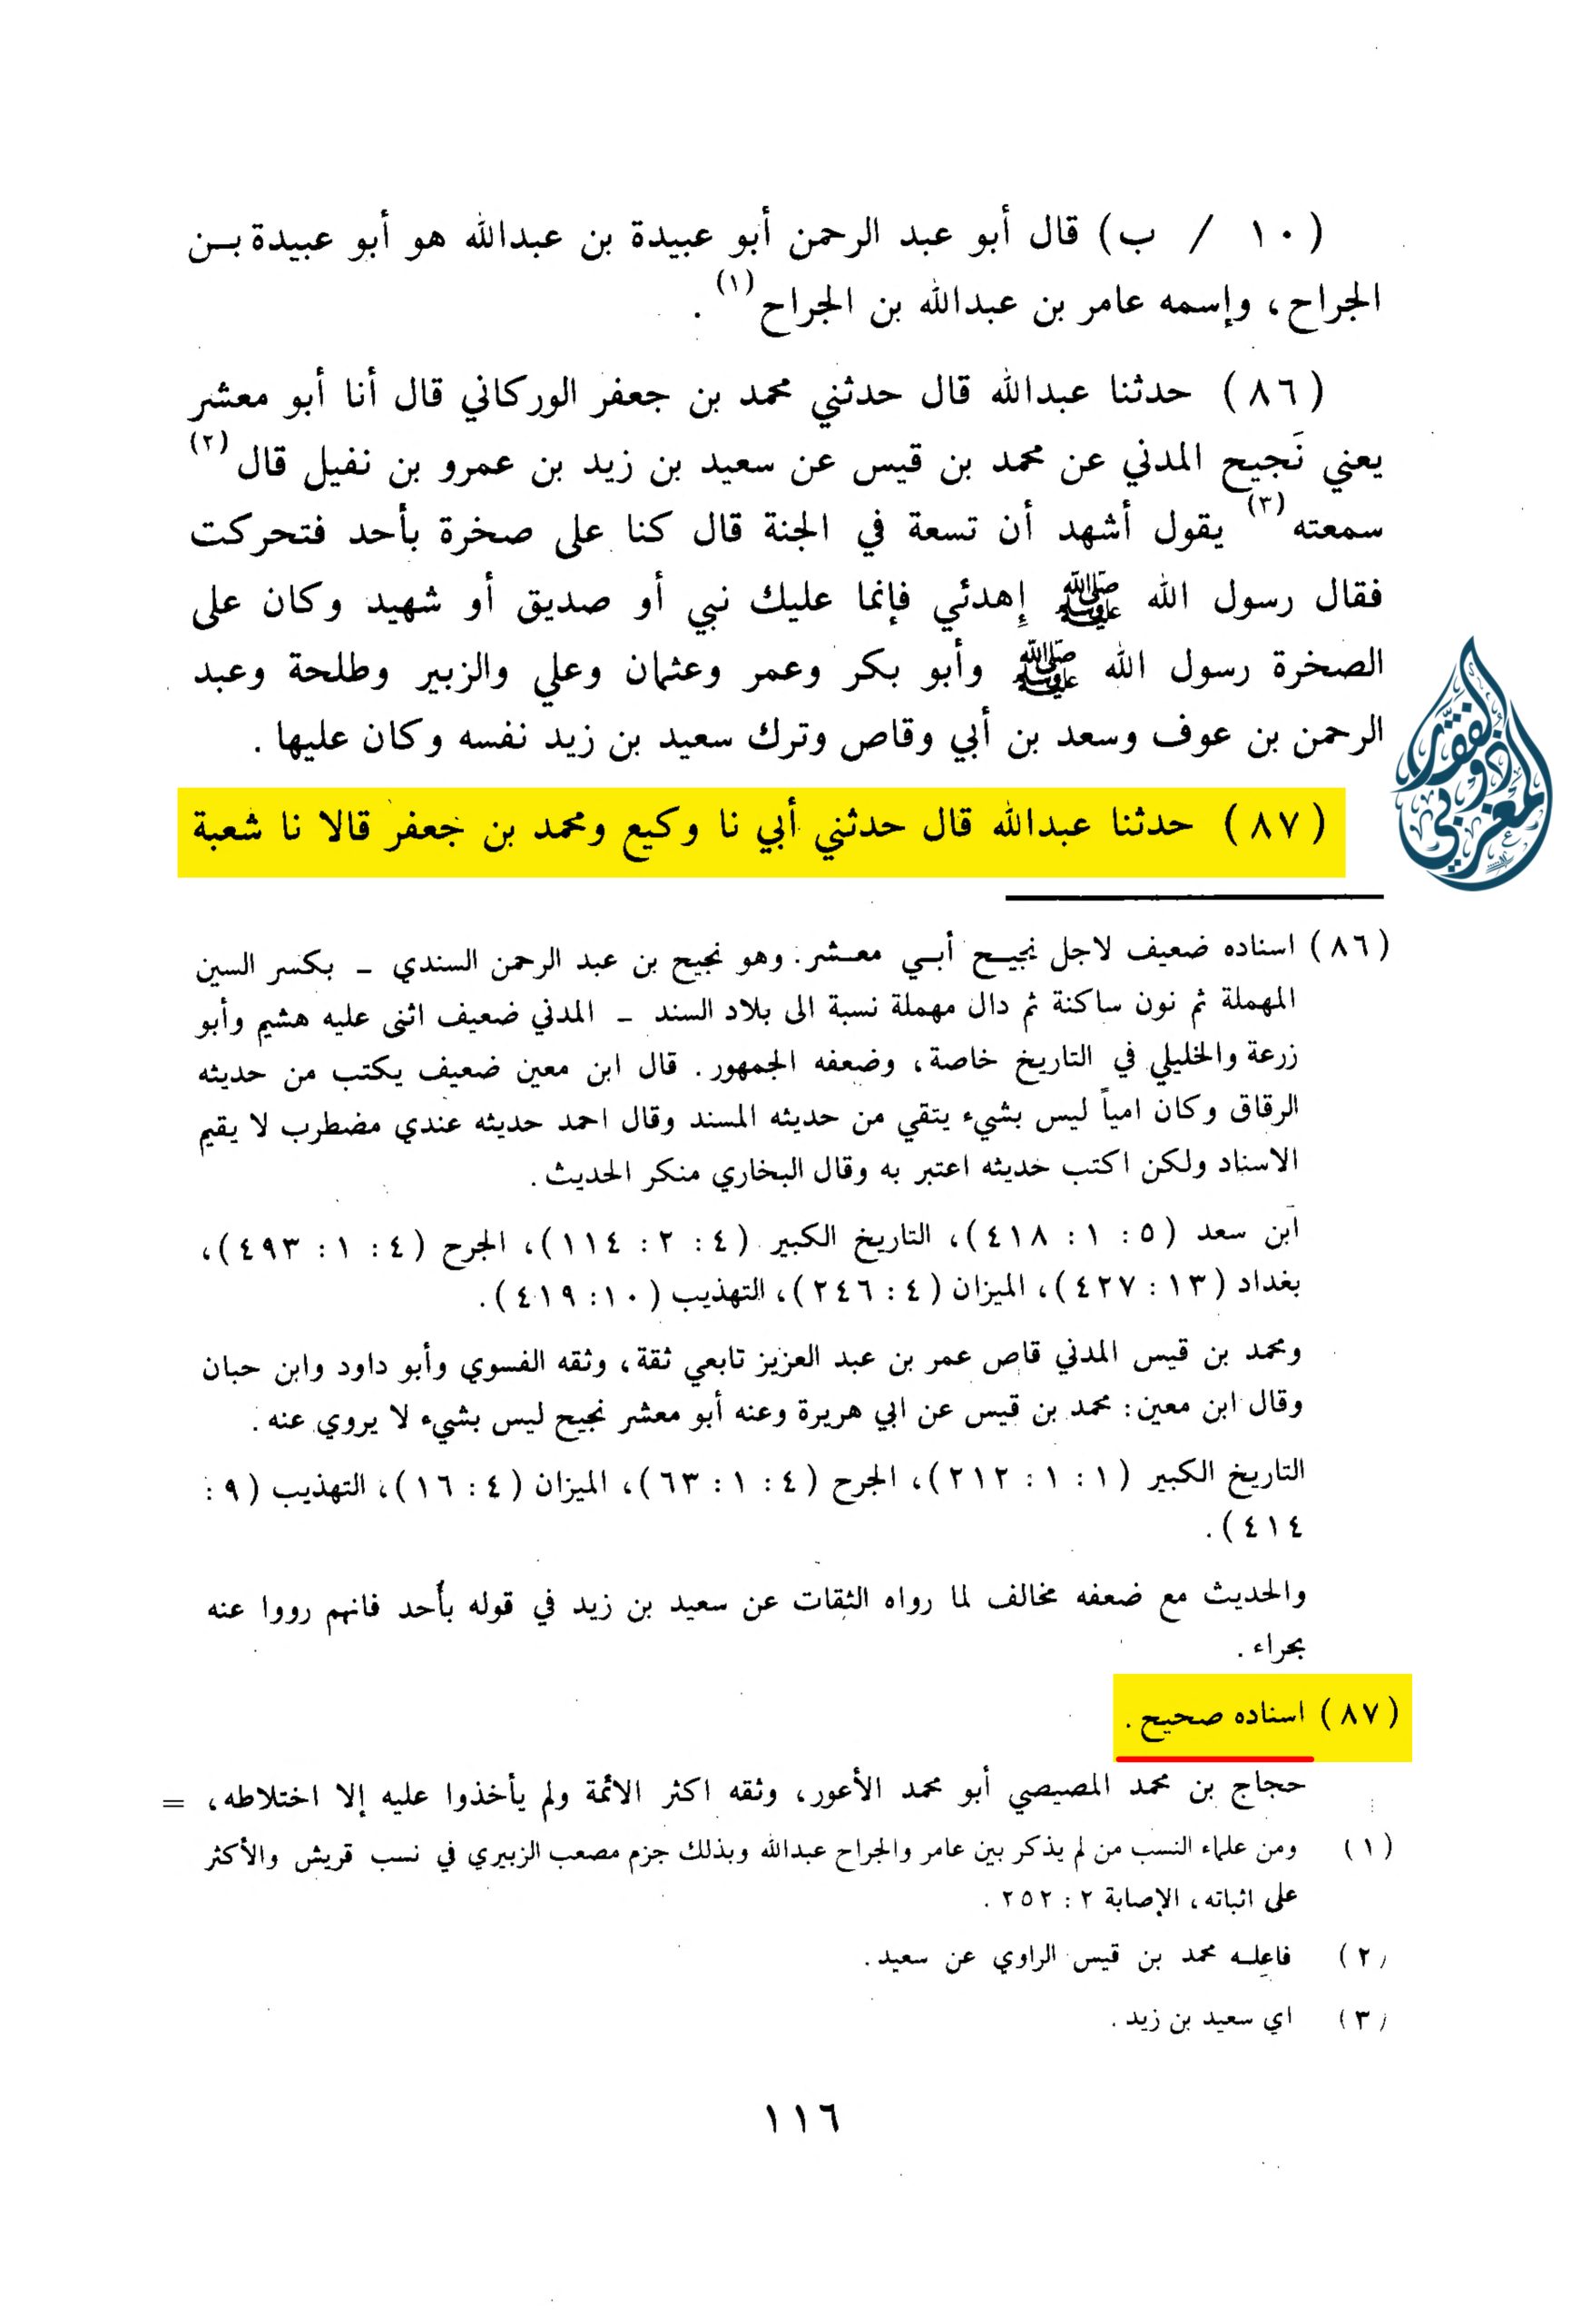 (١٠ / ب) قال أبو عبد الرحمن أبو عبيدة بن عبدالله هو أبو عبيدة بـن
الجراح، وإسمه عامر بن عبدالله بن الجراح (١) .
(٨٦) حدثنا عبدالله قال حدثني محمد بن جعفر الوركاني قال أنا أبو معشر
يعني نَجيح المدني عن محمد بن قيس عن سعيد بن زيد بن عمرو بن نفيل قال (٢)
سمعته (٣) يقول أشهد أن تسعة في الجنة قال كنا على صخرة بأحد فتحركت
فقال رسول الله ﷺ إِهدئي فإنما عليك نبي أو صديق أو شهيد وكان على
الصخرة رسول الله ﷺ وأبو بكر وعمر وعثمان وعلي والزبير وطلحة وعبد
الرحمن بن عوف وسعد بن أبي وقاص وترك سعيد بن زيد نفسه وكان عليها .
(٨٧) حدثنا عبدالله قال حدثني أبي نا وكيع ومحمد بن جعفر قالا نا شعبة
ذو الفقار المغربي
(٨٦) اسناده ضعيف لاجل نجيـح أبـي معـشر. وهو نجيح بن عبد الرحمن السندي ـ بكسر السين
المهملة ثم نون ساكنة ثم دال مهملة نسبة الى بلاد السند ـ المدني ضعيف اثنى عليه هشيم وأبو
زرعة والخليلي في التاريخ خاصة، وضعفه الجمهور. قال ابن معين ضعيف يكتب من حديثه
الرقاق وكان امياً ليس بشيء يتقي من حديثه المسند وقال احمد حديثه عندي مضطرب لا يقيم
الاسناد ولكن اكتب حديثه اعتبر به وقال البخاري منكر الحديث.
ابن سعد (٥ : ١ : ٤١٨)، التاريخ الكبير (٤ : ٢ : ١١٤)، الجرح (٤ : ١ : ٤٩٣)،
بغداد (١٣ : ٤٢٧)، الميزان (٤ : ٢٤٦)، التهذيب (١٠ : ٤١٩).
ومحمد بن قيس المدني قاص عمر بن عبد العزيز تابعي ثقة، وثقه الفسوي وأبو داود وابن حبان
وقال ابن معين: محمد بن قيس عن ابي هريرة وعنه أبو معشر نجيح ليس بشيء لا يروي عنه.
التاريخ الكبير (١ : ١ : ٢١٢)، الجرح (٤ : ١ : ٦٣)، الميزان (٤ : ١٦)، التهذيب (٩ :
٤١٤).
والحديث مع ضعفه مخالف لما رواه الثقات عن سعيد بن زيد في قوله بأحد فانهم رووا عنه
بحراء.
(٨٧) اسناده صحيح.
حجاج بن محمد المصيصي أبو محمد الأعور، وثقه اكثر الائمة ولم يأخذوا عليه إلا اختلاطه، =
(١) ومن علماء النسب من لم يذكر بين عامر والجراح عبدالله وبذلك جزم مصعب الزبيري في نسب قريش والأكثر
على اثباته، الإصابة ٢ : ٢٥٢ .
(٢) فاعلـه محمد بن قيس الراوي عن سعيد.
(٣) اي سعيد بن زيد.
١١٦